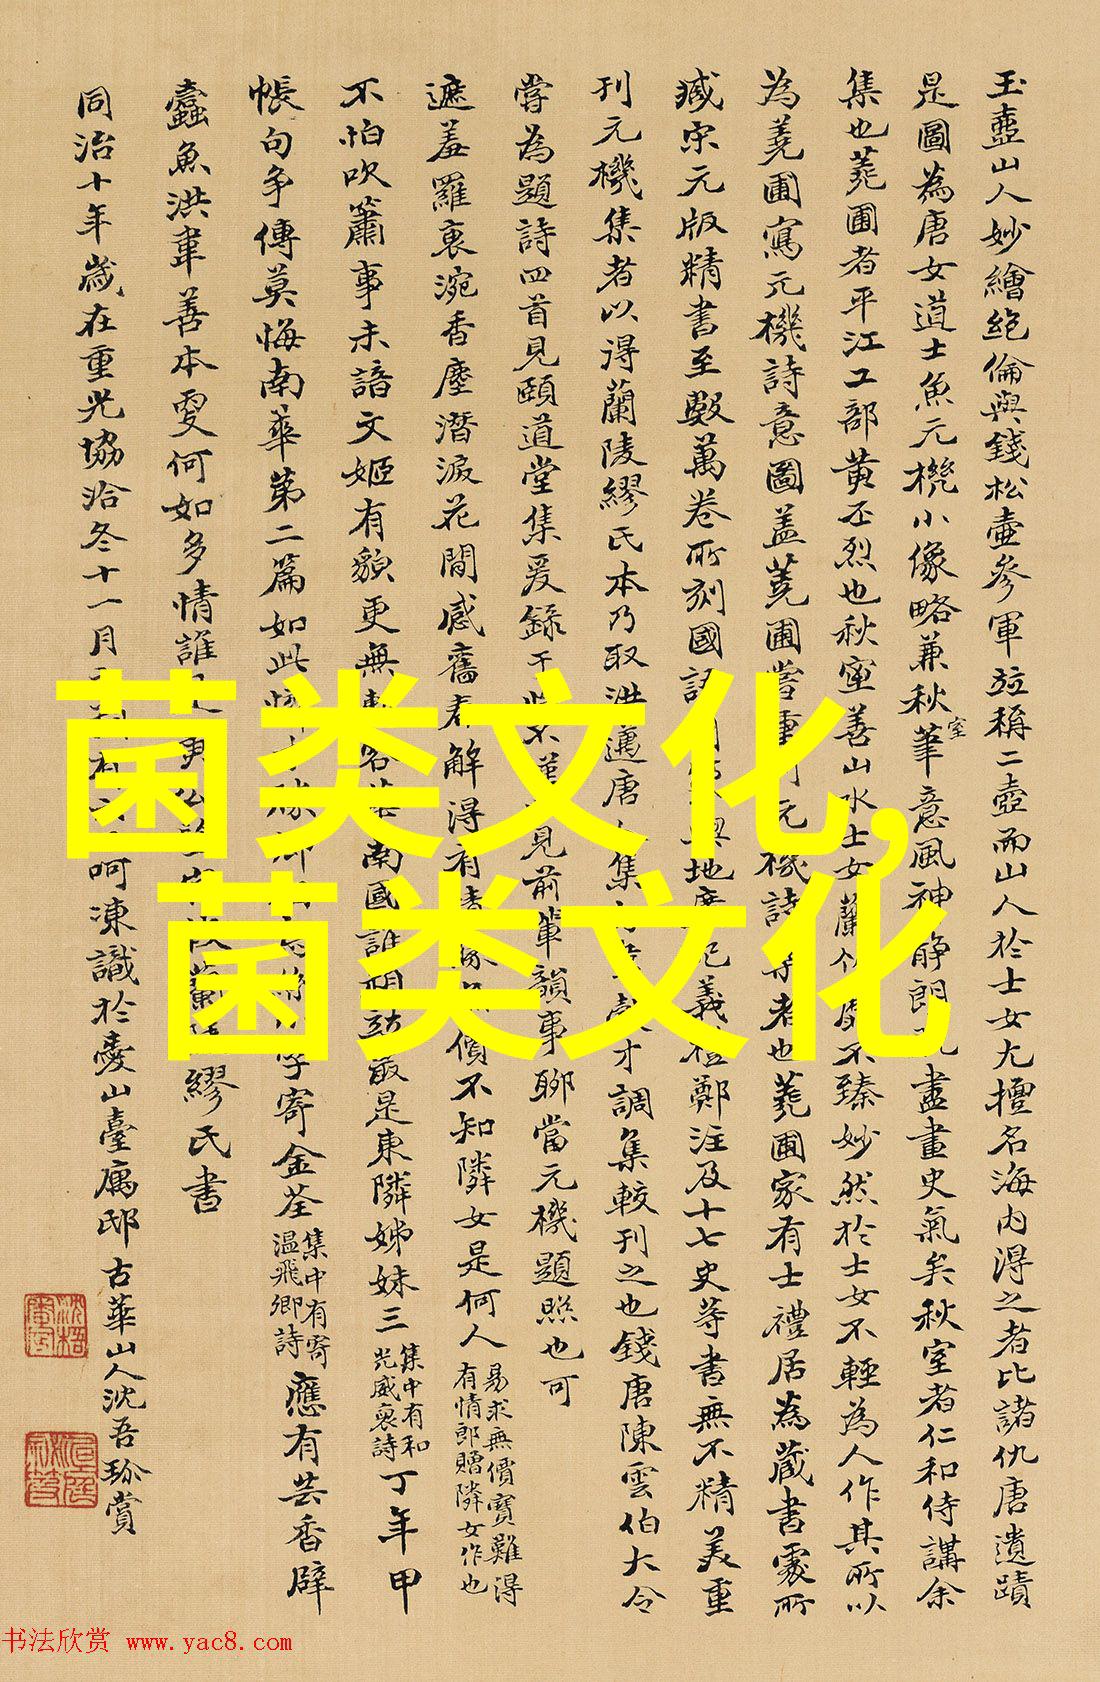 玉壺山人妙繪絕倫與錢松壺參軍並稱二壺而山人於士女尤擅名海內得之者比諸仇唐遺蹟
是圖為唐女道士魚元機小像略兼秋室筆意風神靜朗盡畫史氣矣秋室者仁和侍講余
集也蕘圃者平江工部黃丕烈也秋室善山水士女蘭不臻妙然於士女不輕為人作其所以
為蕘圃寫元機詩意圖蓋蕘圃嘗重元機詩者也蕘圃家有士禮居為藏書處所
臧宋元版精書至數萬卷所刻國語輿地鄭注及十七史等書無不精美重
刊元機集者以得蘭陵繆氏本乃取洪邁唐人集才調集較刊之也錢唐陳雲伯大令
嘗為題詩四首見頤道堂集爰錄于見前輩韻事聊當元機題照也可
遮羞羅裒涴香塵潛淚花間感舊春解得有價不知隣女是何人
易求無價寶難得
有情郎贈隣女作也
不怕吹簫事未諳文姬有貌更無南國誰最是東隣姊妹三
集中有和
光威裒詩
丁年甲
帳句争傳莫悔南華第二篇如此寄金荃
集中有寄
溫飛卿詩
應有芸香辟
蠹魚洪韋善本更何如多情誰繆氏書
同治十年歲在重光協洽冬十一月呵凍識於山臺寓邸古華山人沈吾珍賞
菌类文化,
菌类文化
书法欣赏 www.yac8.com